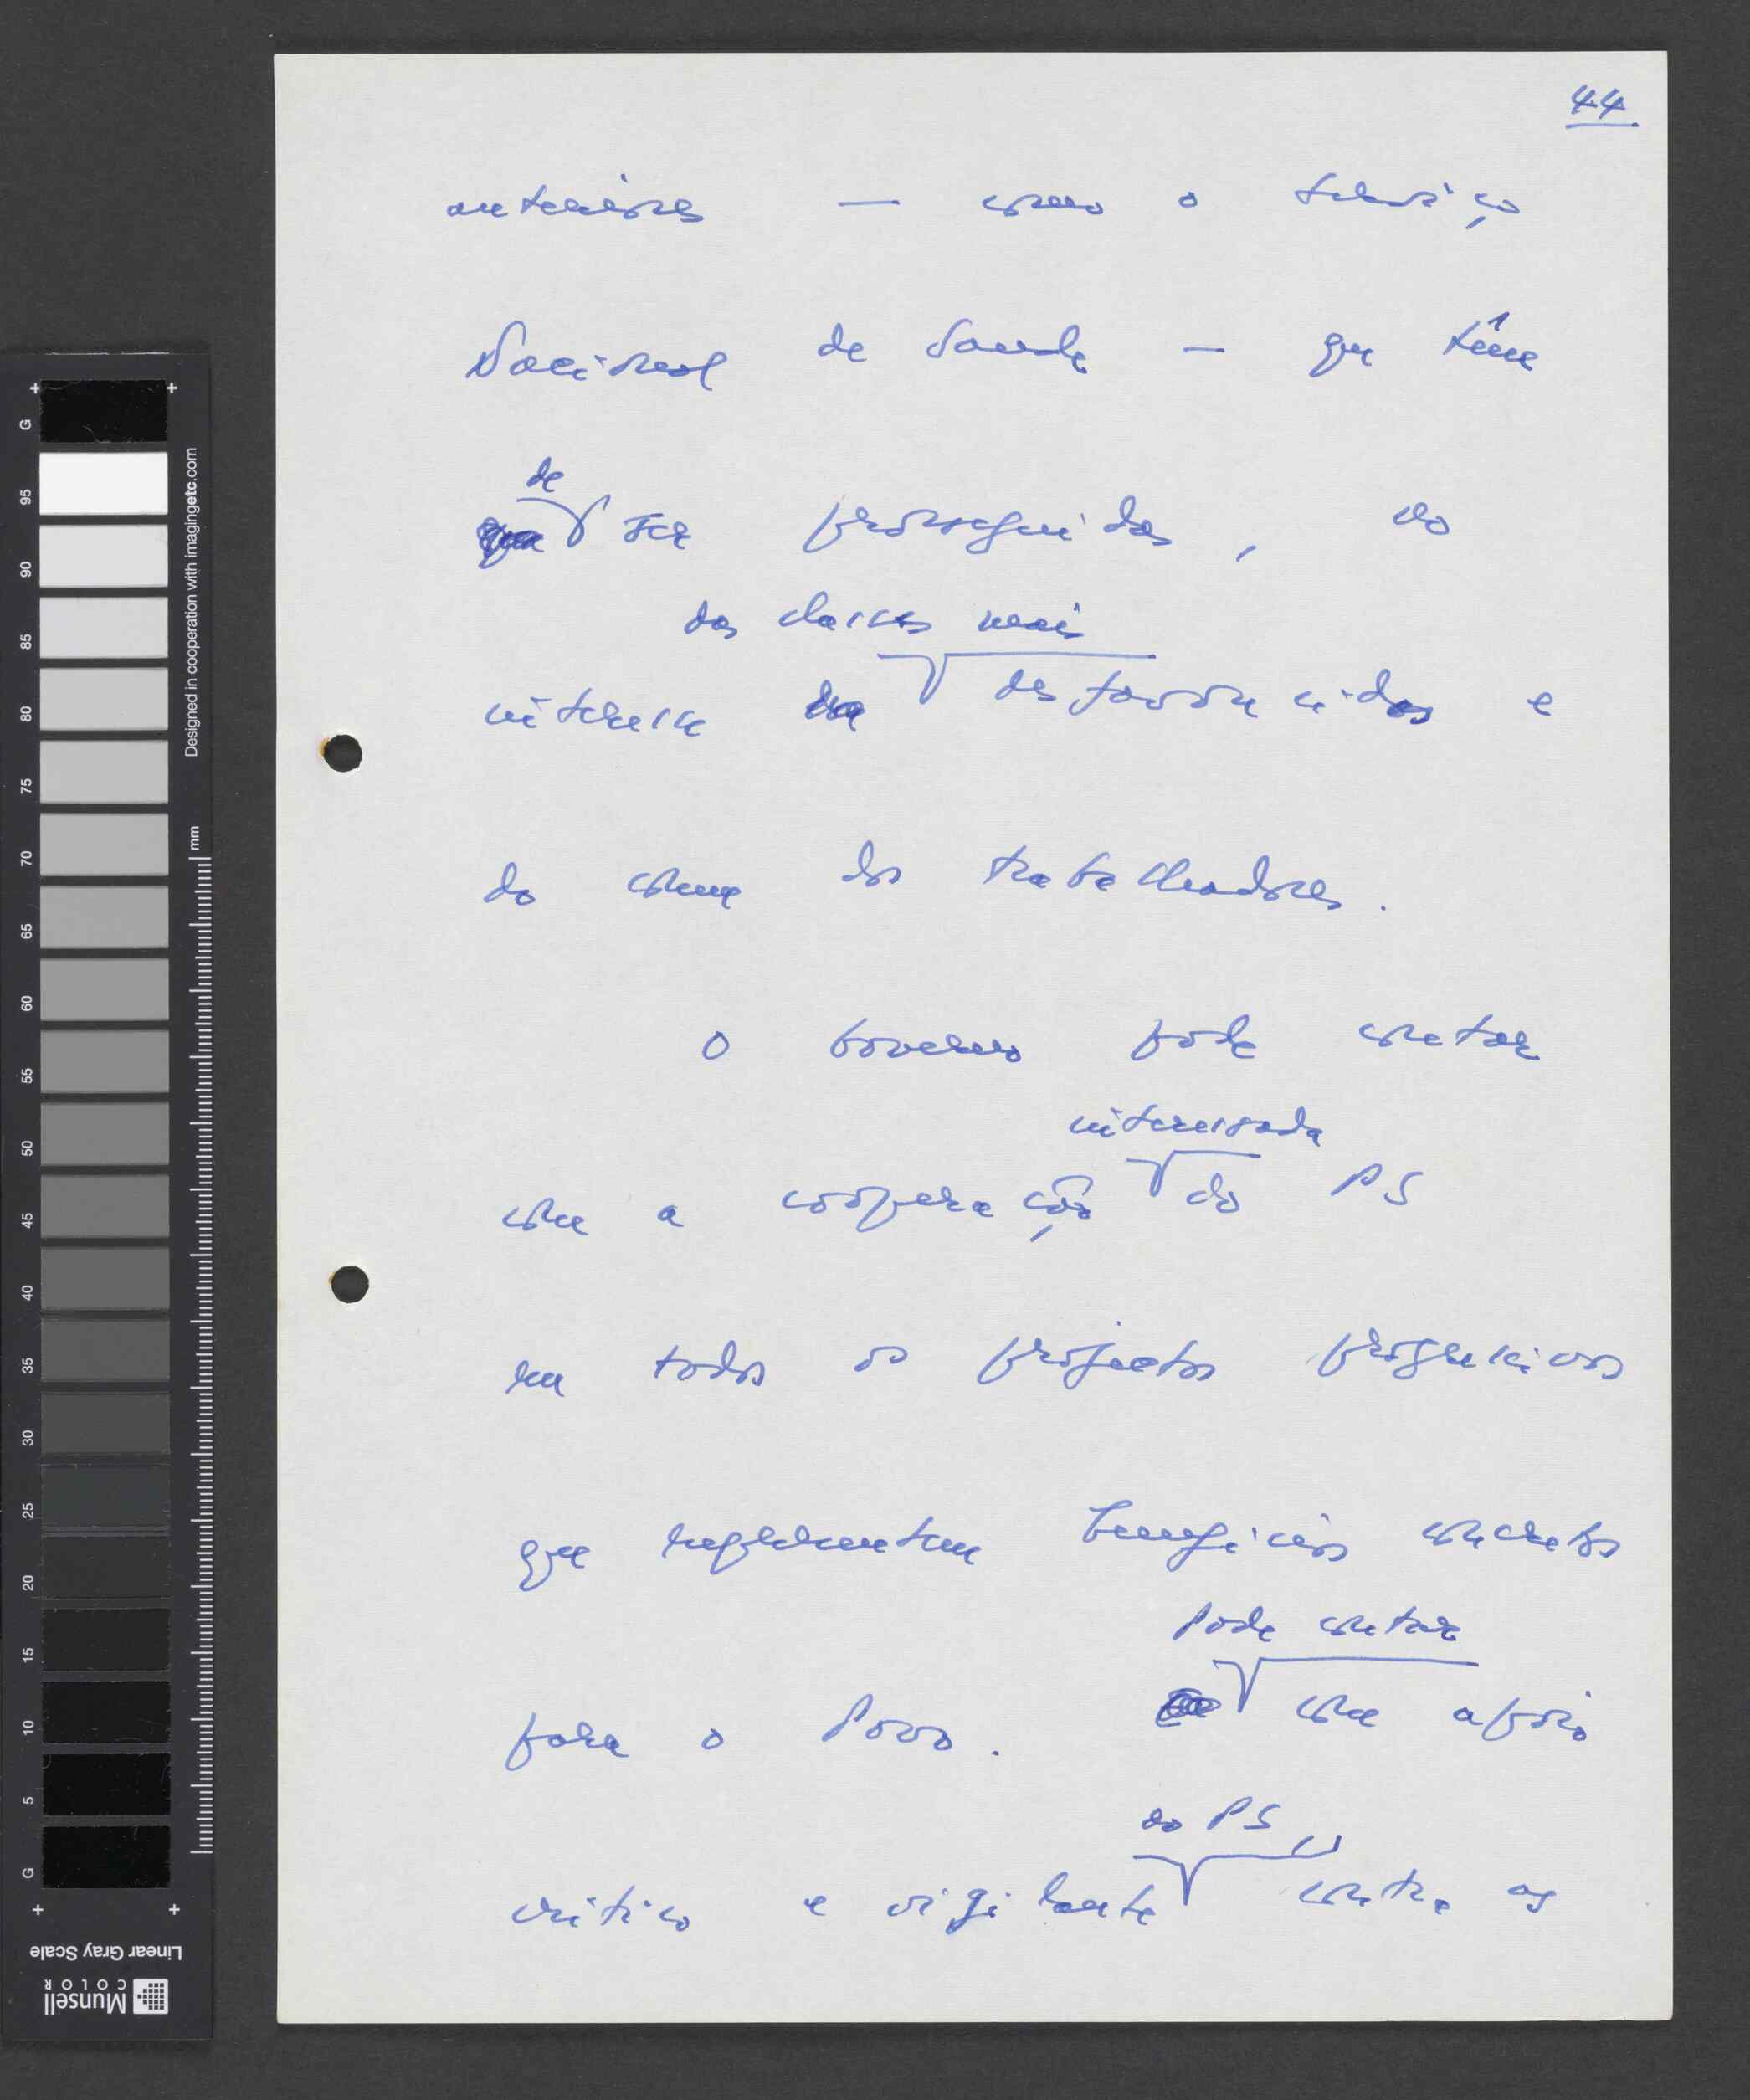 44
anteriores — como o Serviço
Nacional de Saude — que têm
de
ser prosseguidas, no
das classes mais
interesse desfavorecidas e
do comum dos trabalhadores.
O Governo pode contar
interessada
com a cooperação do PS
em todos os projectos progressivos
que representem beneficios concretos
Pode contar
para o Povo. com apoio
do PS,
critico e vigilante contra as
G 95 90 85 80 75 70 65 60 55 50 45 40 35 30 25 20 15 10 5 G
Designed in cooperation with imagingetc.com
mm
Linear Gray Scale
Munsell
COLOR